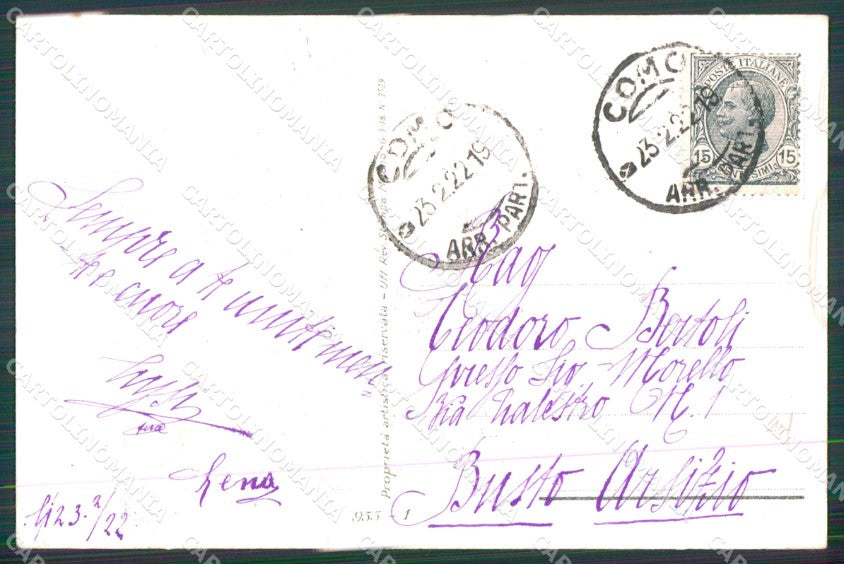 CARTOLINOMANIA
COMO
23.2.22.19
ARR. PART.
COMO
23.2.22.19
ARR. PART.
POSTE ITALIANE
15 15
Sempre a te
te cuore
Rag
Teodoro Bertoli
presso Sig. Morello
Via N. 1
Busto Arsizio
Lena
li 23-2/22
Proprietà artistica riservata - Uff. Rev. Stampa
955 1